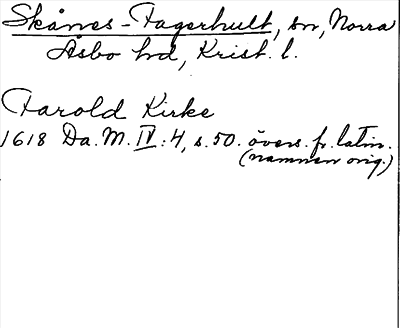 Skånes-Fagerhult, sn, Norra
Åsbo hd, Krist. l.
Farold Kirke
1618 Da. M. IV:4, s. 50. övers. fr. latin.
(namnen orig.)